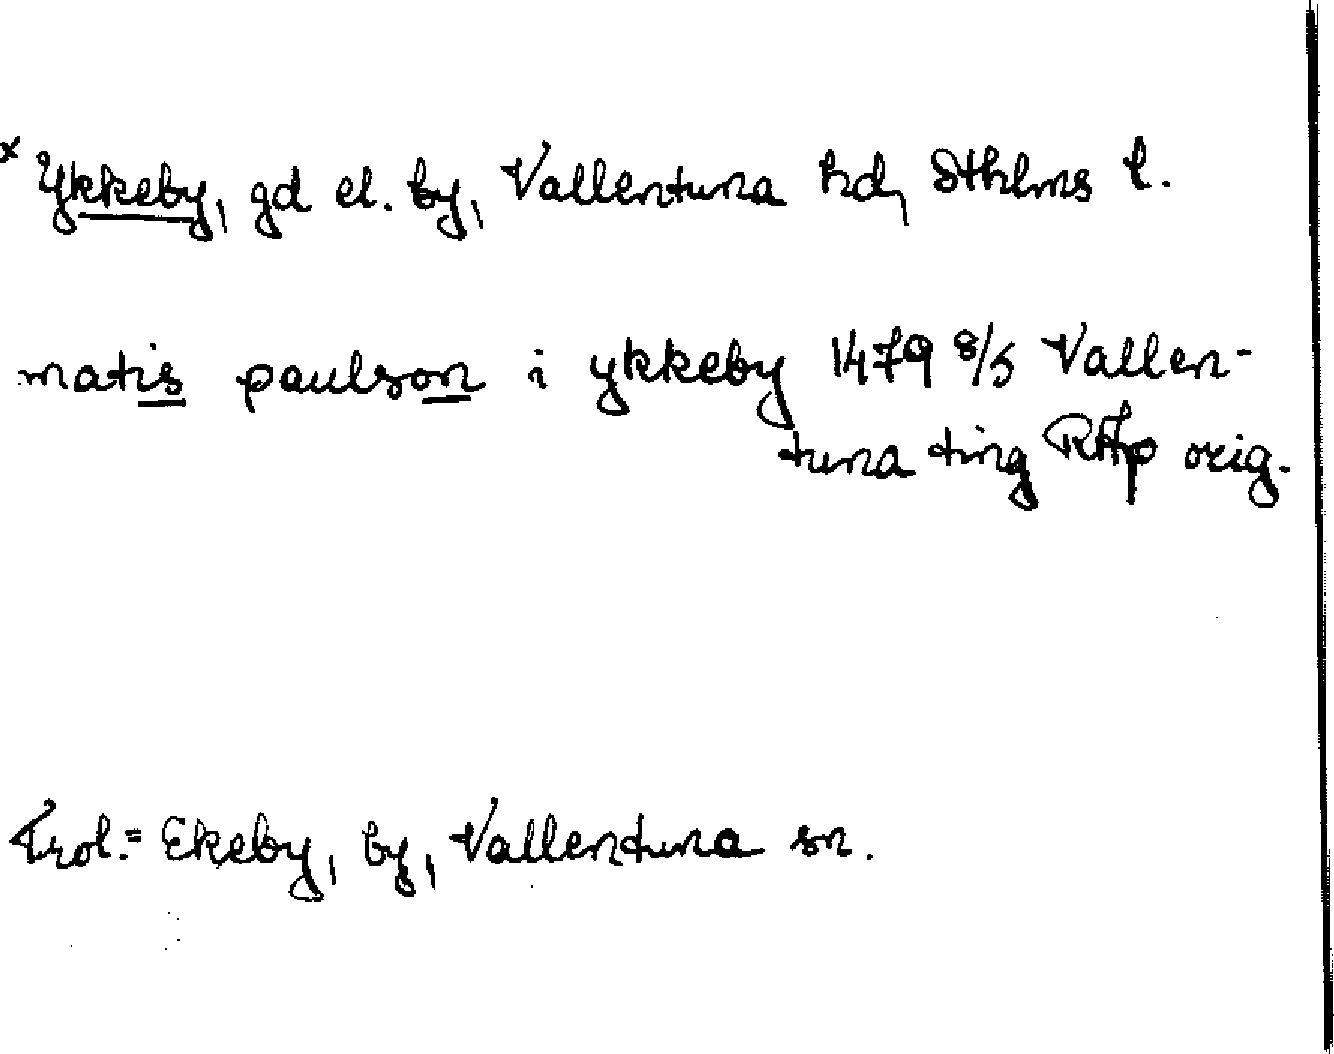 x Ykkeby, gd el. by, Vallentuna hd, Sthlms l.
matis paulson i ykkeby 1479 8/5 Vallen-
tuna ting RAp orig.
Trol.= Ekeby, by, Vallentuna sn.